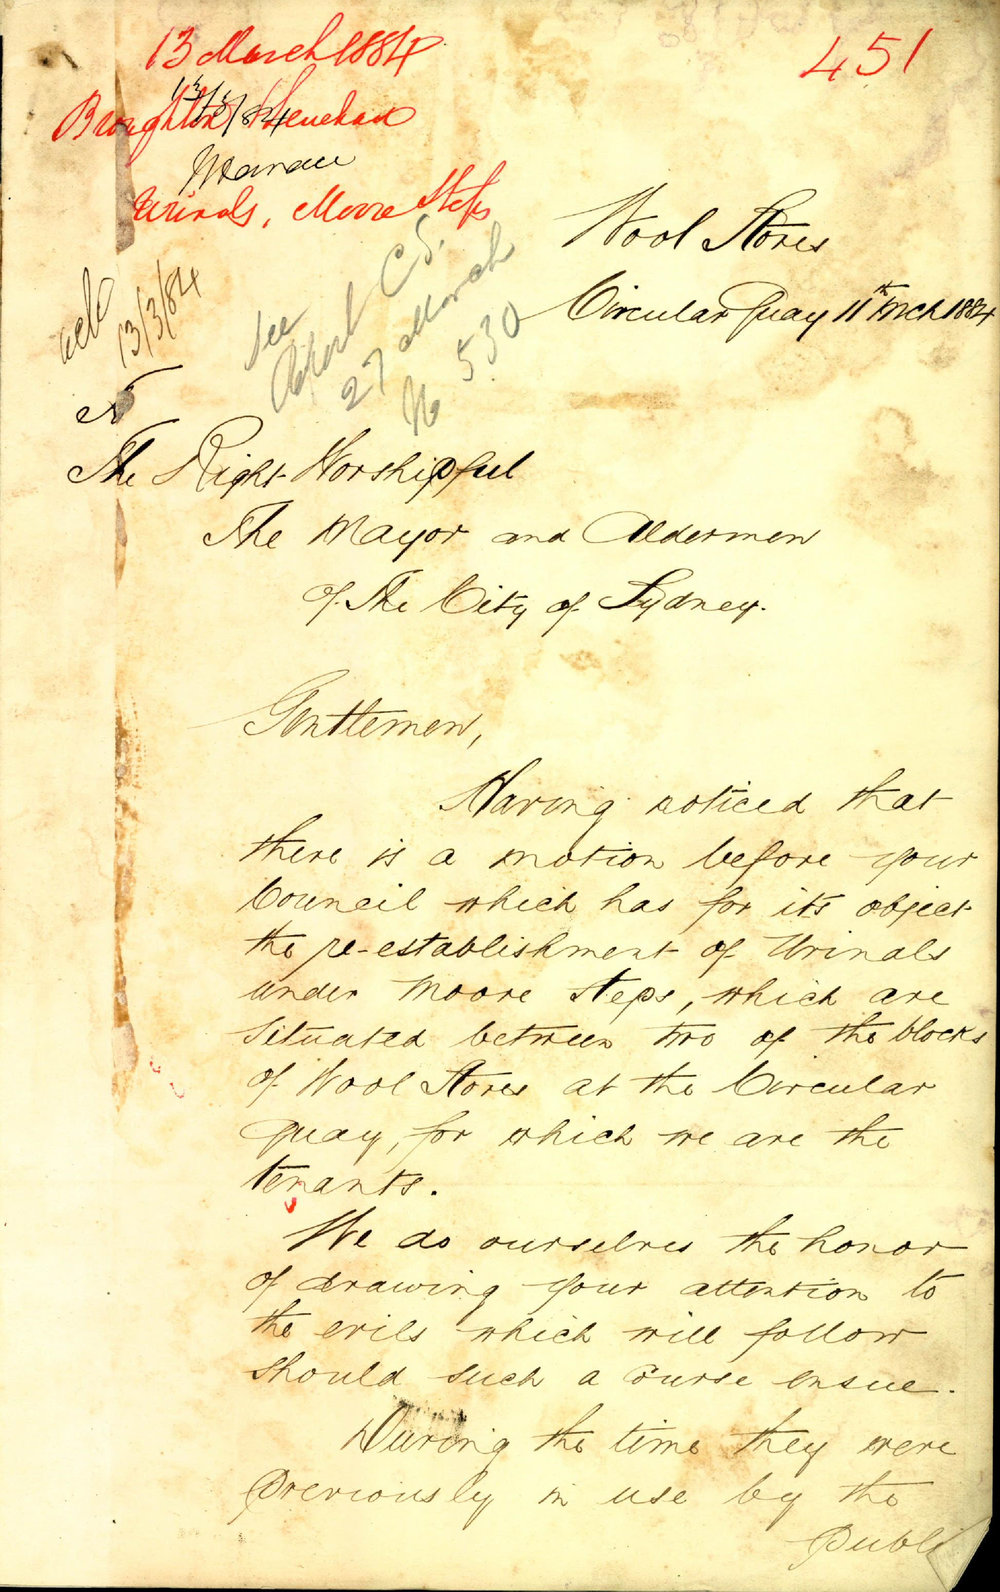 13 March 1884
451
Broughton
13/3/84
Urinals, Moore Steps
Wool Stores
Circular Quay 11th Mch 1884
13/3/84
See
Report C S.
27 March
No 530
To
The Right Worshipful
The Mayor and Aldermen
of The City of Sydney.
Gentlemen,
Having noticed that
there is a motion before your
Council which has for it's object
the re-establishment of Urinals
under Moore Steps, which are
situated between two of the blocks
of Wool Stores at the Circular
Quay, for which we are the
tenants.
We do ourselves the honor
of drawing your attention to
the evils which will follow
should such a course ensue.
During the time they were
previously in use by the
Publi